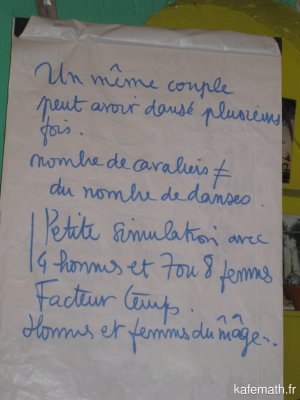 Un même couple
peut avoir dansé plusieurs
fois.
nombre de cavaliers ≠
du nombre de danses.
Petite simulation avec
4 hommes et 7 ou 8 femmes
Facteur temps.
Hommes et femmes du même
kafemath.fr